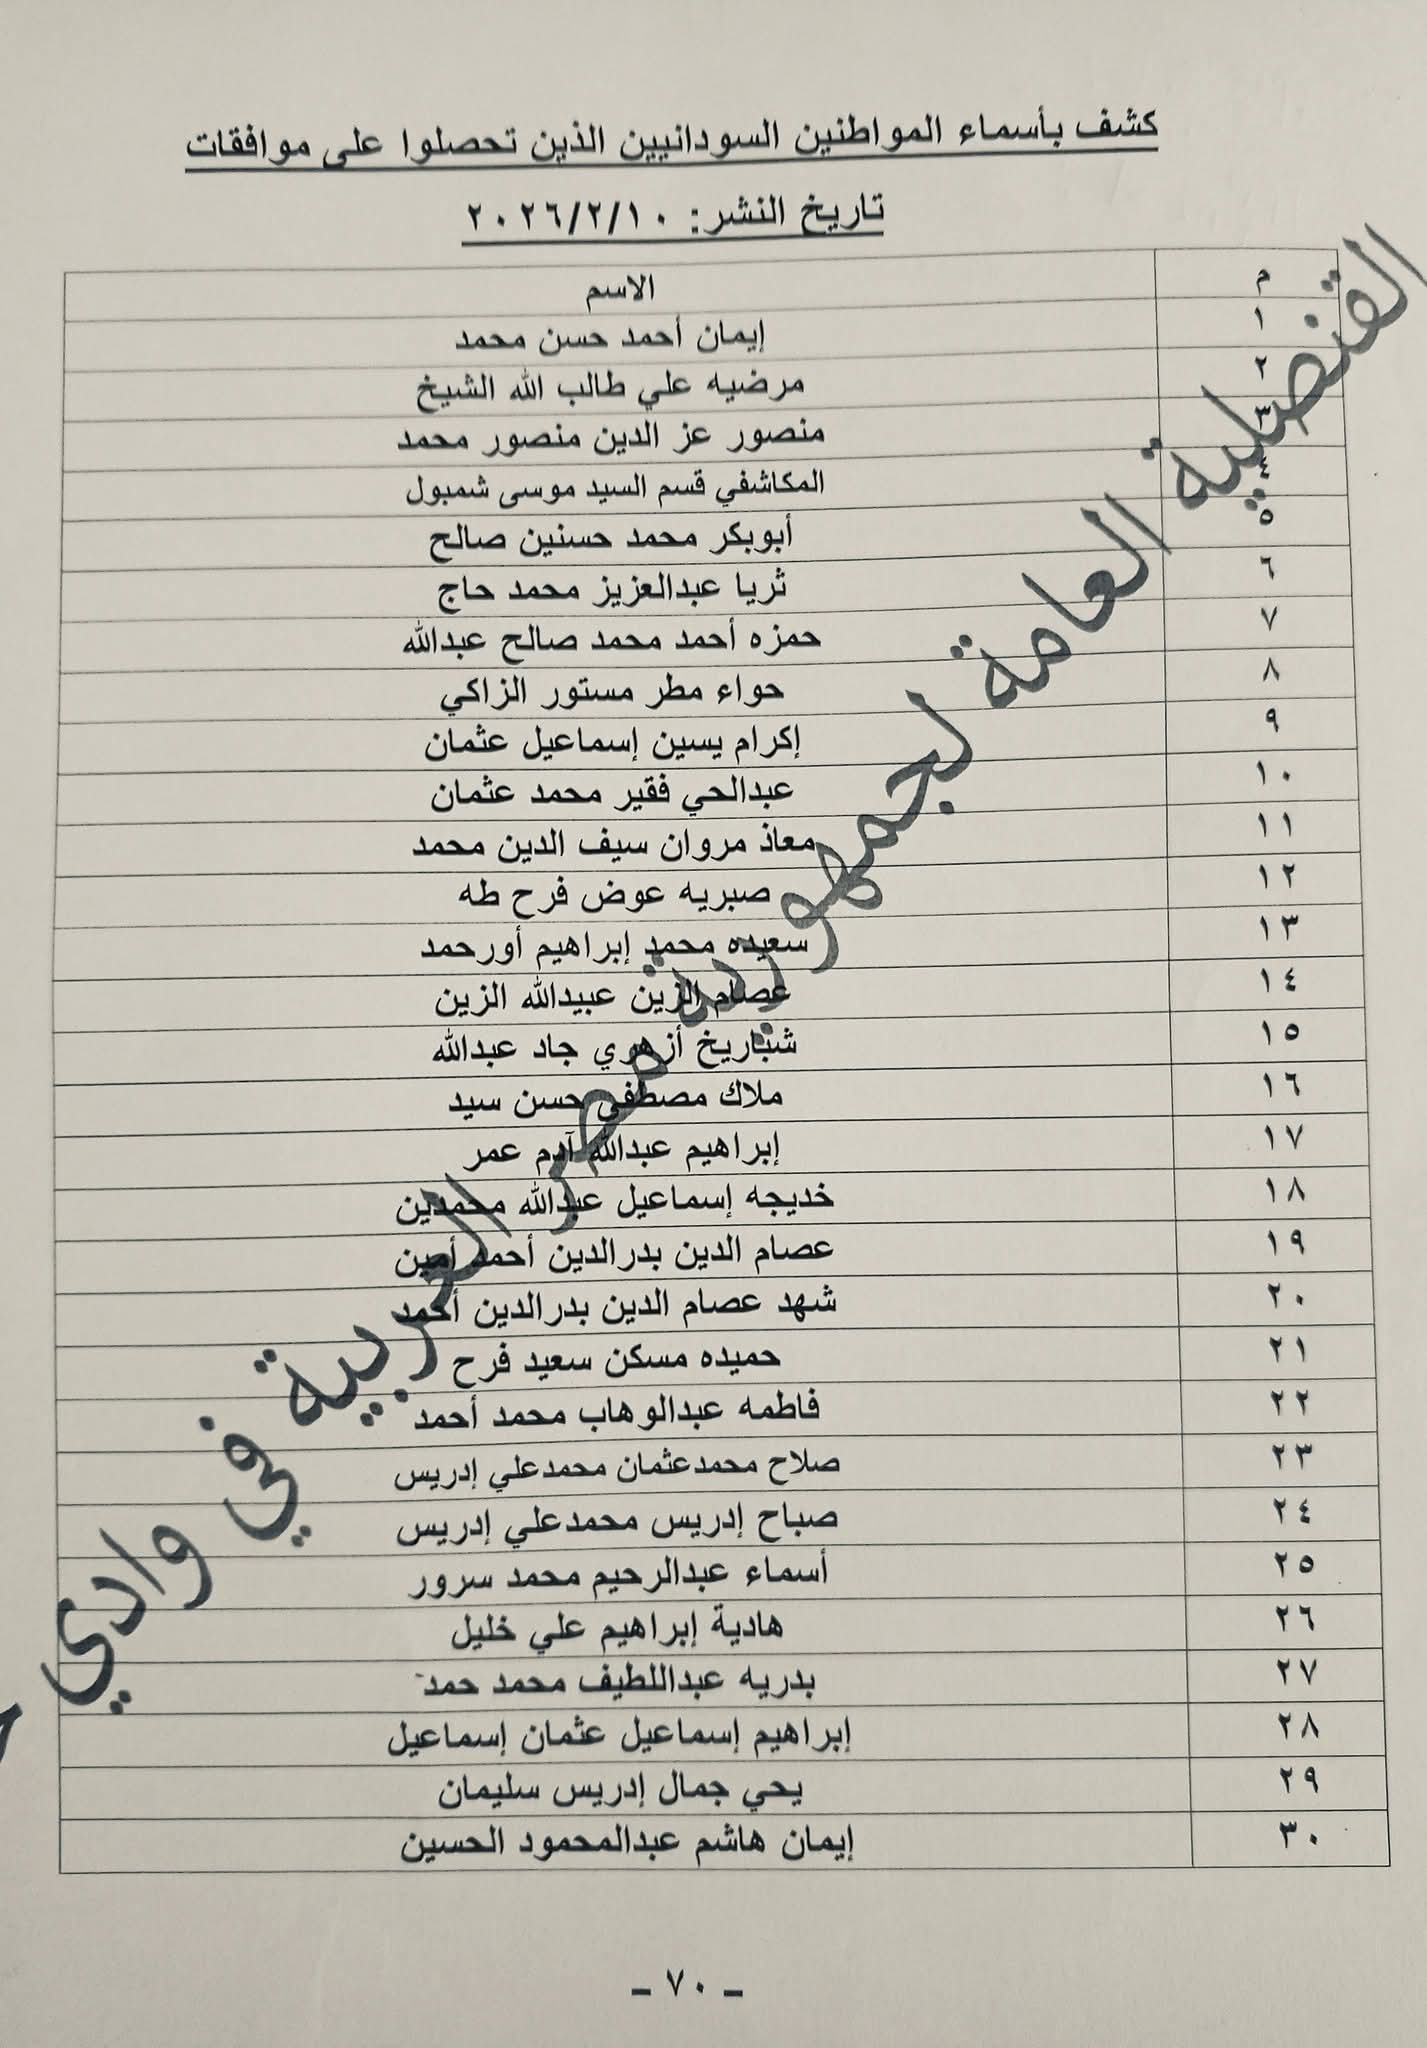 كشف بأسماء المواطنين السودانيين الذين تحصلوا على موافقات
تاريخ النشر: ٢٠٢٦/٢/١٠
م الاسم
١ إيمان أحمد حسن محمد
٢ مرضيه علي طالب الله الشيخ
٣ منصور عز الدين منصور محمد
٤ المكاشفي قسم السيد موسى شمبول
٥ أبوبكر محمد حسنين صالح
٦ ثريا عبدالعزيز محمد حاج
٧ حمزه أحمد محمد صالح عبدالله
٨ حواء مطر مستور الزاكي
٩ إكرام يسين إسماعيل عثمان
١٠ عبدالحي فقير محمد عثمان
١١ معاذ مروان سيف الدين محمد
١٢ صبريه عوض فرح طه
١٣ سعيده محمد إبراهيم أورحمد
١٤ عصام الزين عبيدالله الزين
١٥ أزهري جاد عبدالله
١٦ ملاك مصطفى حسن سيد
١٧ إبراهيم عبدالله آدم عمر
١٨ خديجه إسماعيل عبدالله محمدين
١٩ عصام الدين بدرالدين أحمد أمين
٢٠ شهد عصام الدين بدرالدين أحمد
٢١ حميده مسكن سعيد فرح
٢٢ فاطمه عبدالوهاب محمد أحمد
٢٣ صلاح محمدعثمان محمدعلي إدريس
٢٤ صباح إدريس محمدعلي إدريس
٢٥ أسماء عبدالرحيم محمد سرور
٢٦ هادية إبراهيم علي خليل
٢٧ بدريه عبداللطيف محمد حمد
٢٨ إبراهيم إسماعيل عثمان إسماعيل
٢٩ يحي جمال إدريس سليمان
٣٠ إيمان هاشم عبدالمحمود الحسين
القنصلية العامة لجمهورية مصر العربية في وادي
- ٧٠ -